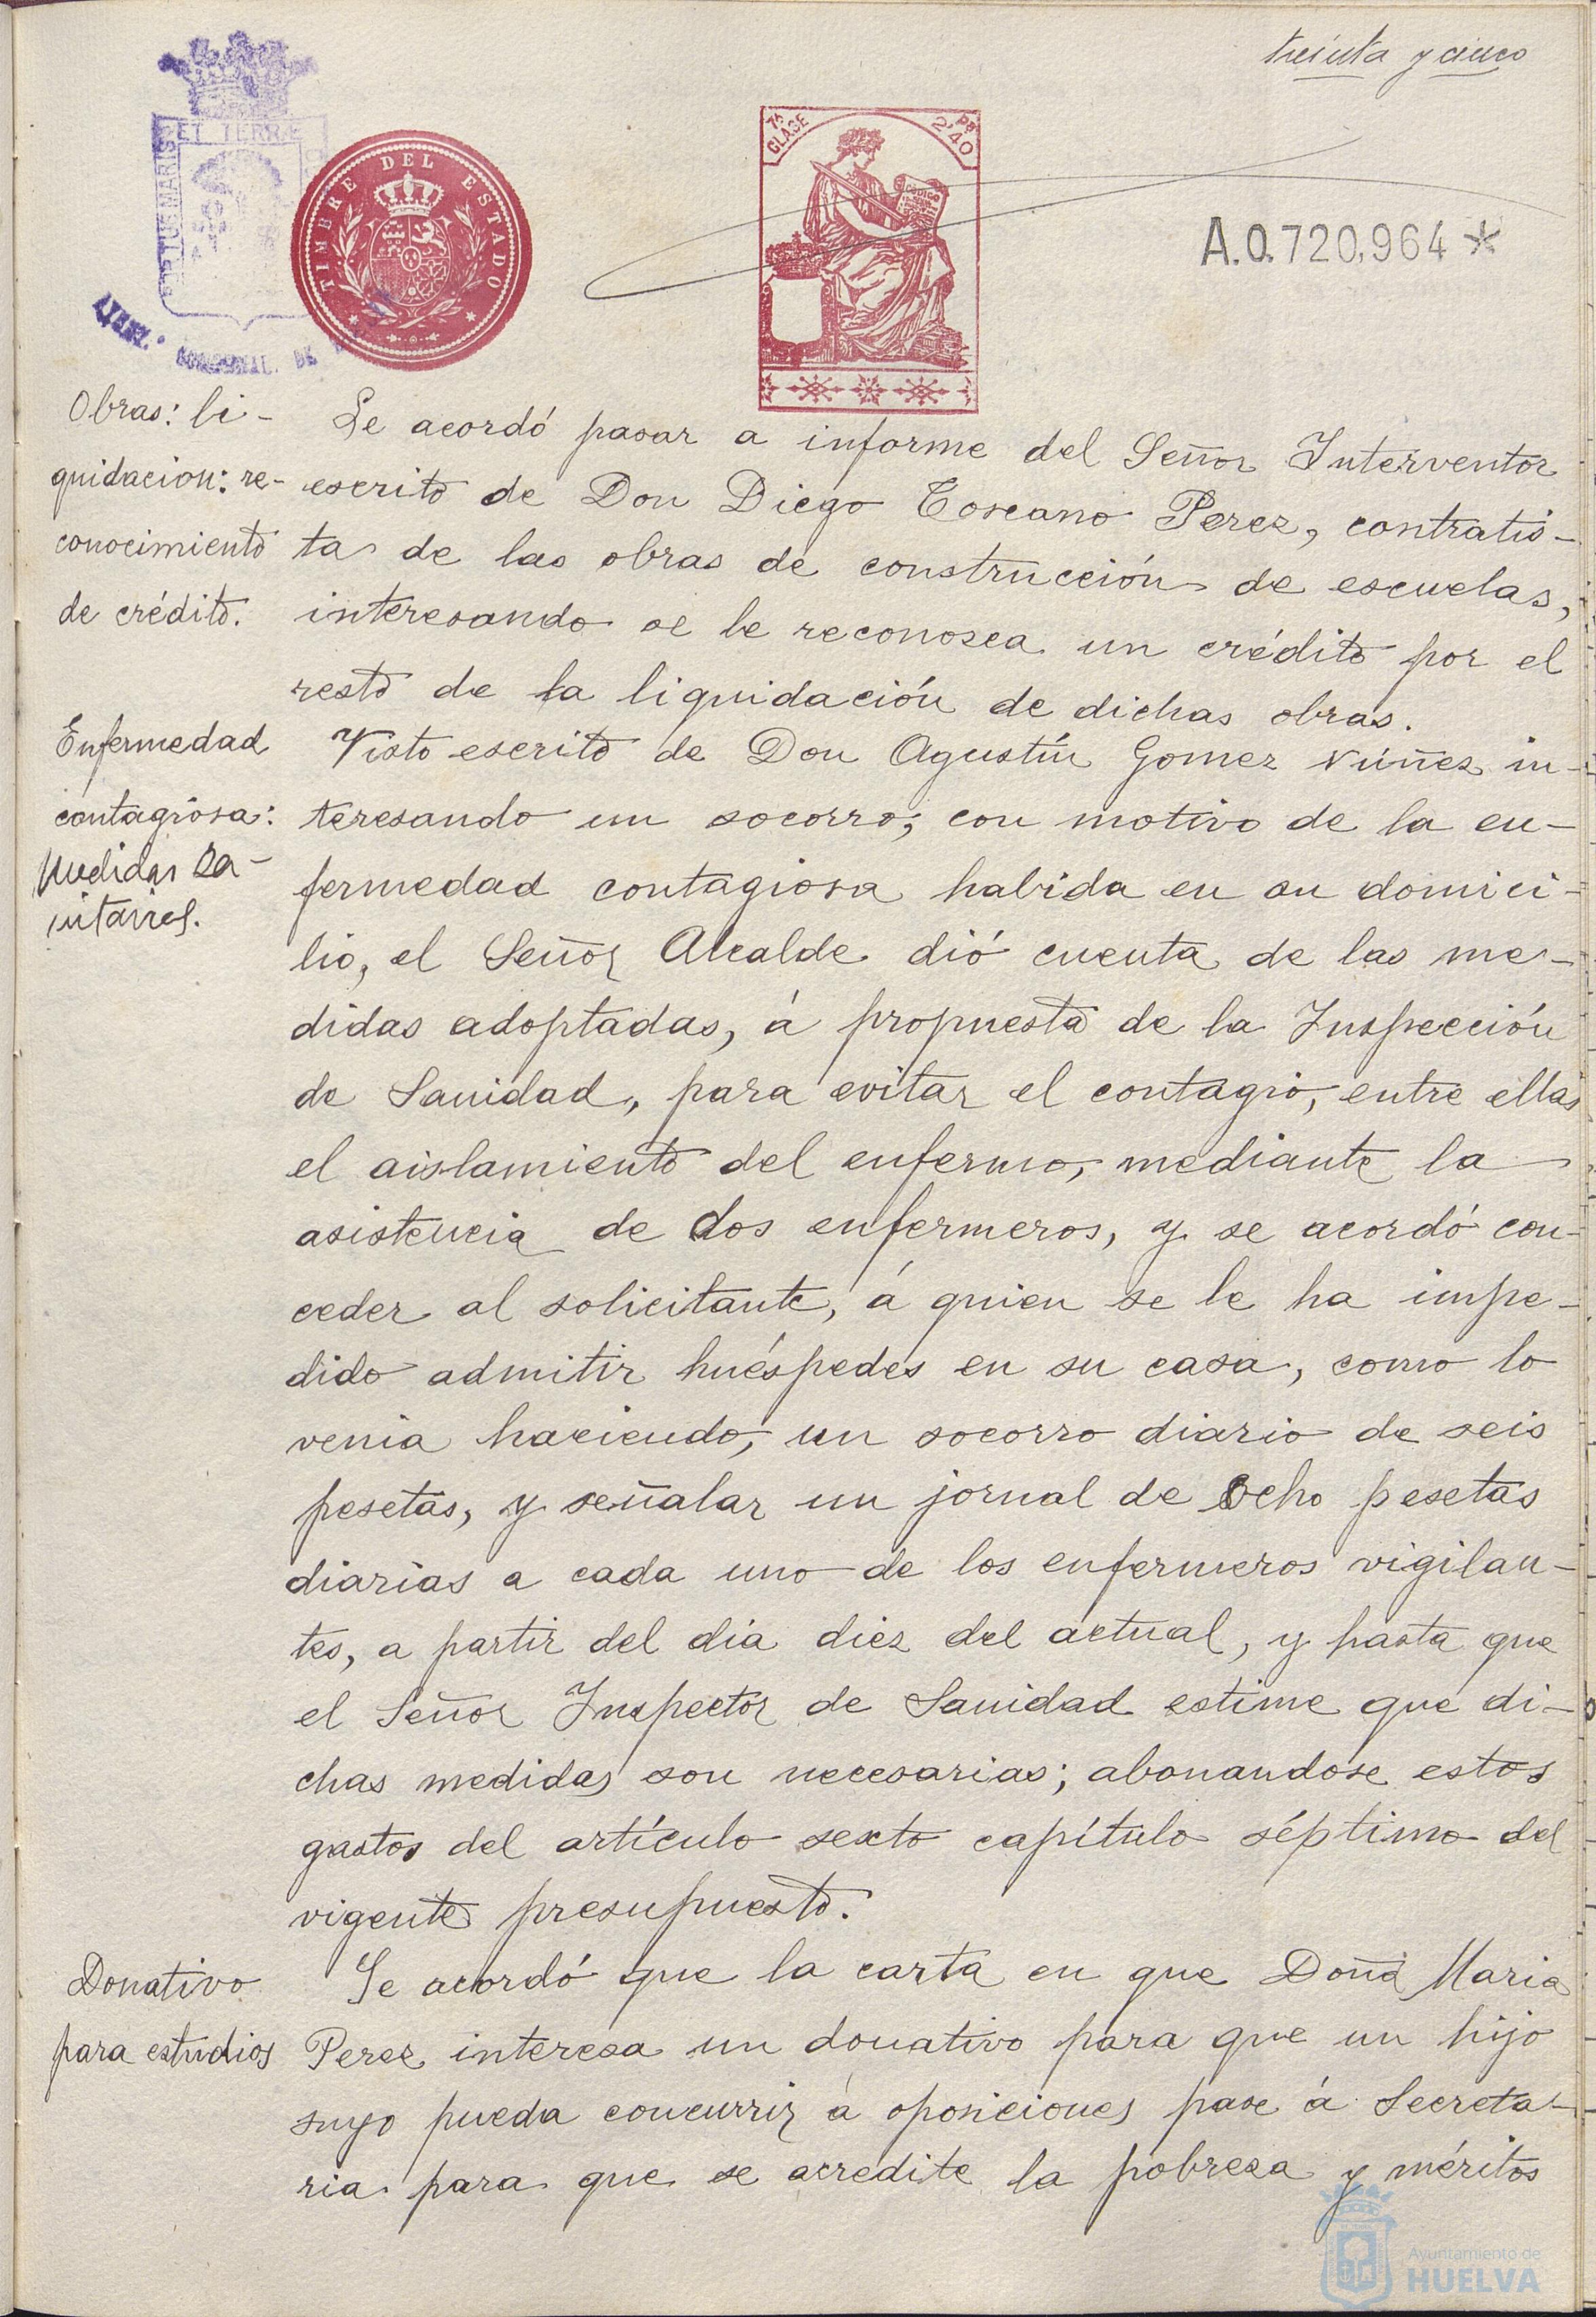 treinta y cinco
ET TERRÆ
TIMBRE DEL ESTADO
7ª CLASE
Pts 2'40
CODIGO
A.0.720,964 *
Obras: li-
quidacion: re-
conocimiento
de crédito.
Se acordó pasar a informe del Señor Interventor
escrito de Don Diego Toscano Perez, contratis-
ta de las obras de construcción de escuelas,
interesando se le reconosca un crédito por el
resto de la liquidación de dichas obras.
Enfermedad
contagiosa:
Medidas sa-
nitarias.
Visto escrito de Don Agustín Gomez Núñez in-
teresando un socorro, con motivo de la en-
fermedad contagiosa habida en su domici-
lio, el Señor Alcalde dió cuenta de las me-
didas adoptadas, á propuesta de la Inspección
de Sanidad, para evitar el contagio, entre ellas
el aislamiento del enfermo, mediante la
asistencia de dos enfermeros, y se acordó con-
ceder al solicitante, á quien se le ha impe-
dido admitir huéspedes en su casa, como lo
venia haciendo, un socorro diario de seis
pesetas, y señalar un jornal de ocho pesetas
diarias a cada uno de los enfermeros vigilan-
tes, a partir del día diez del actual, y hasta que
el Señor Inspector de Sanidad estime que di-
chas medidas son necesarias; abonandose estos
gastos del artículo sexto capítulo séptimo del
vigente presupuesto.
Donativo
para estudios
Se acordó que la carta en que Doña Maria
Perez interesa un donativo para que un hijo
suyo pueda concurrir á oposiciones pase á Secreta-
ria para que se acredite la pobreza y méritos
Ayuntamiento de
HUELVA